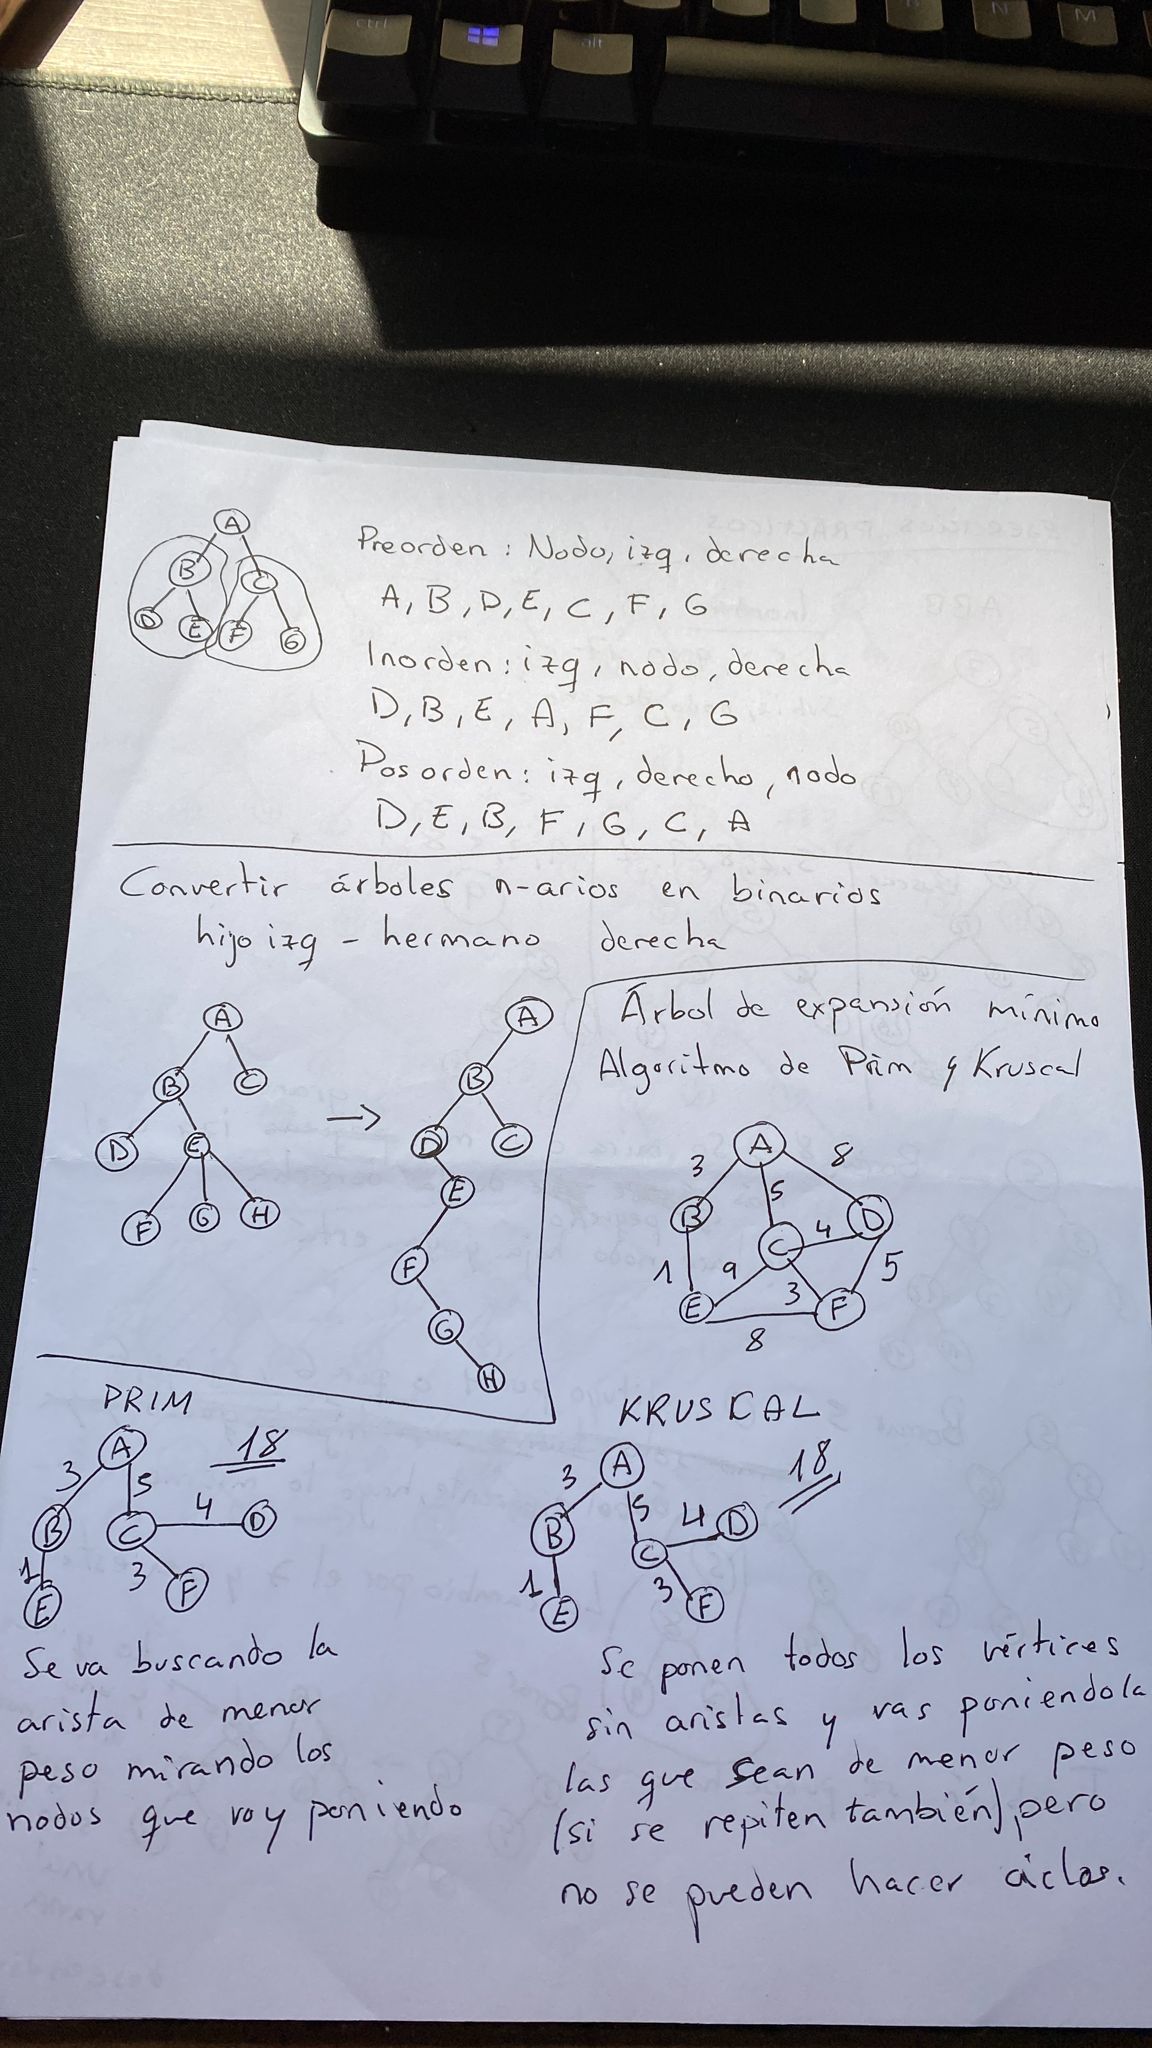 ctrl
alt
B
N
M
A
B
C
D
E
F
G
Preorden: Nodo, izq, derecha
A, B, D, E, C, F, G
Inorden: izq, nodo, derecha
D, B, E, A, F, C, G
Posorden: izq, derecho, nodo
D, E, B, F, G, C, A
Convertir árboles n-arios en binarios
hijo izq - hermano derecha
A
B C
D E
F G H
→
A
B
D C
E
F
G
H
Árbol de expansión mínimo
Algoritmo de Prim y Kruscal
A
3 5 8
B C 4 D
1 9 3 5
E F
8
PRIM
18
A
3 5
B C 4 D
1 3
E F
Se va buscando la
arista de menor
peso mirando los
nodos que voy poniendo
KRUSCAL
18
A
3 5
B C 4 D
1 3
E F
Se ponen todos los vértices
sin aristas y vas poniendola
las que sean de menor peso
(si se repiten también), pero
no se pueden hacer ciclos.